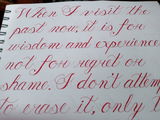 When I visit the
past now, it is for
wisdom and experience
not for regret or
shame. I don't attem
to erase it, only t